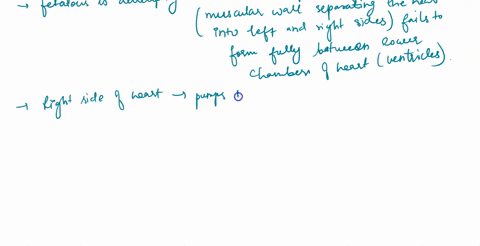 → fetalous is
(muscular wall separating the
into left and right sides) fails to
form fully between lower
chambers of heart (ventricles).
→ Right side of heart → pumps